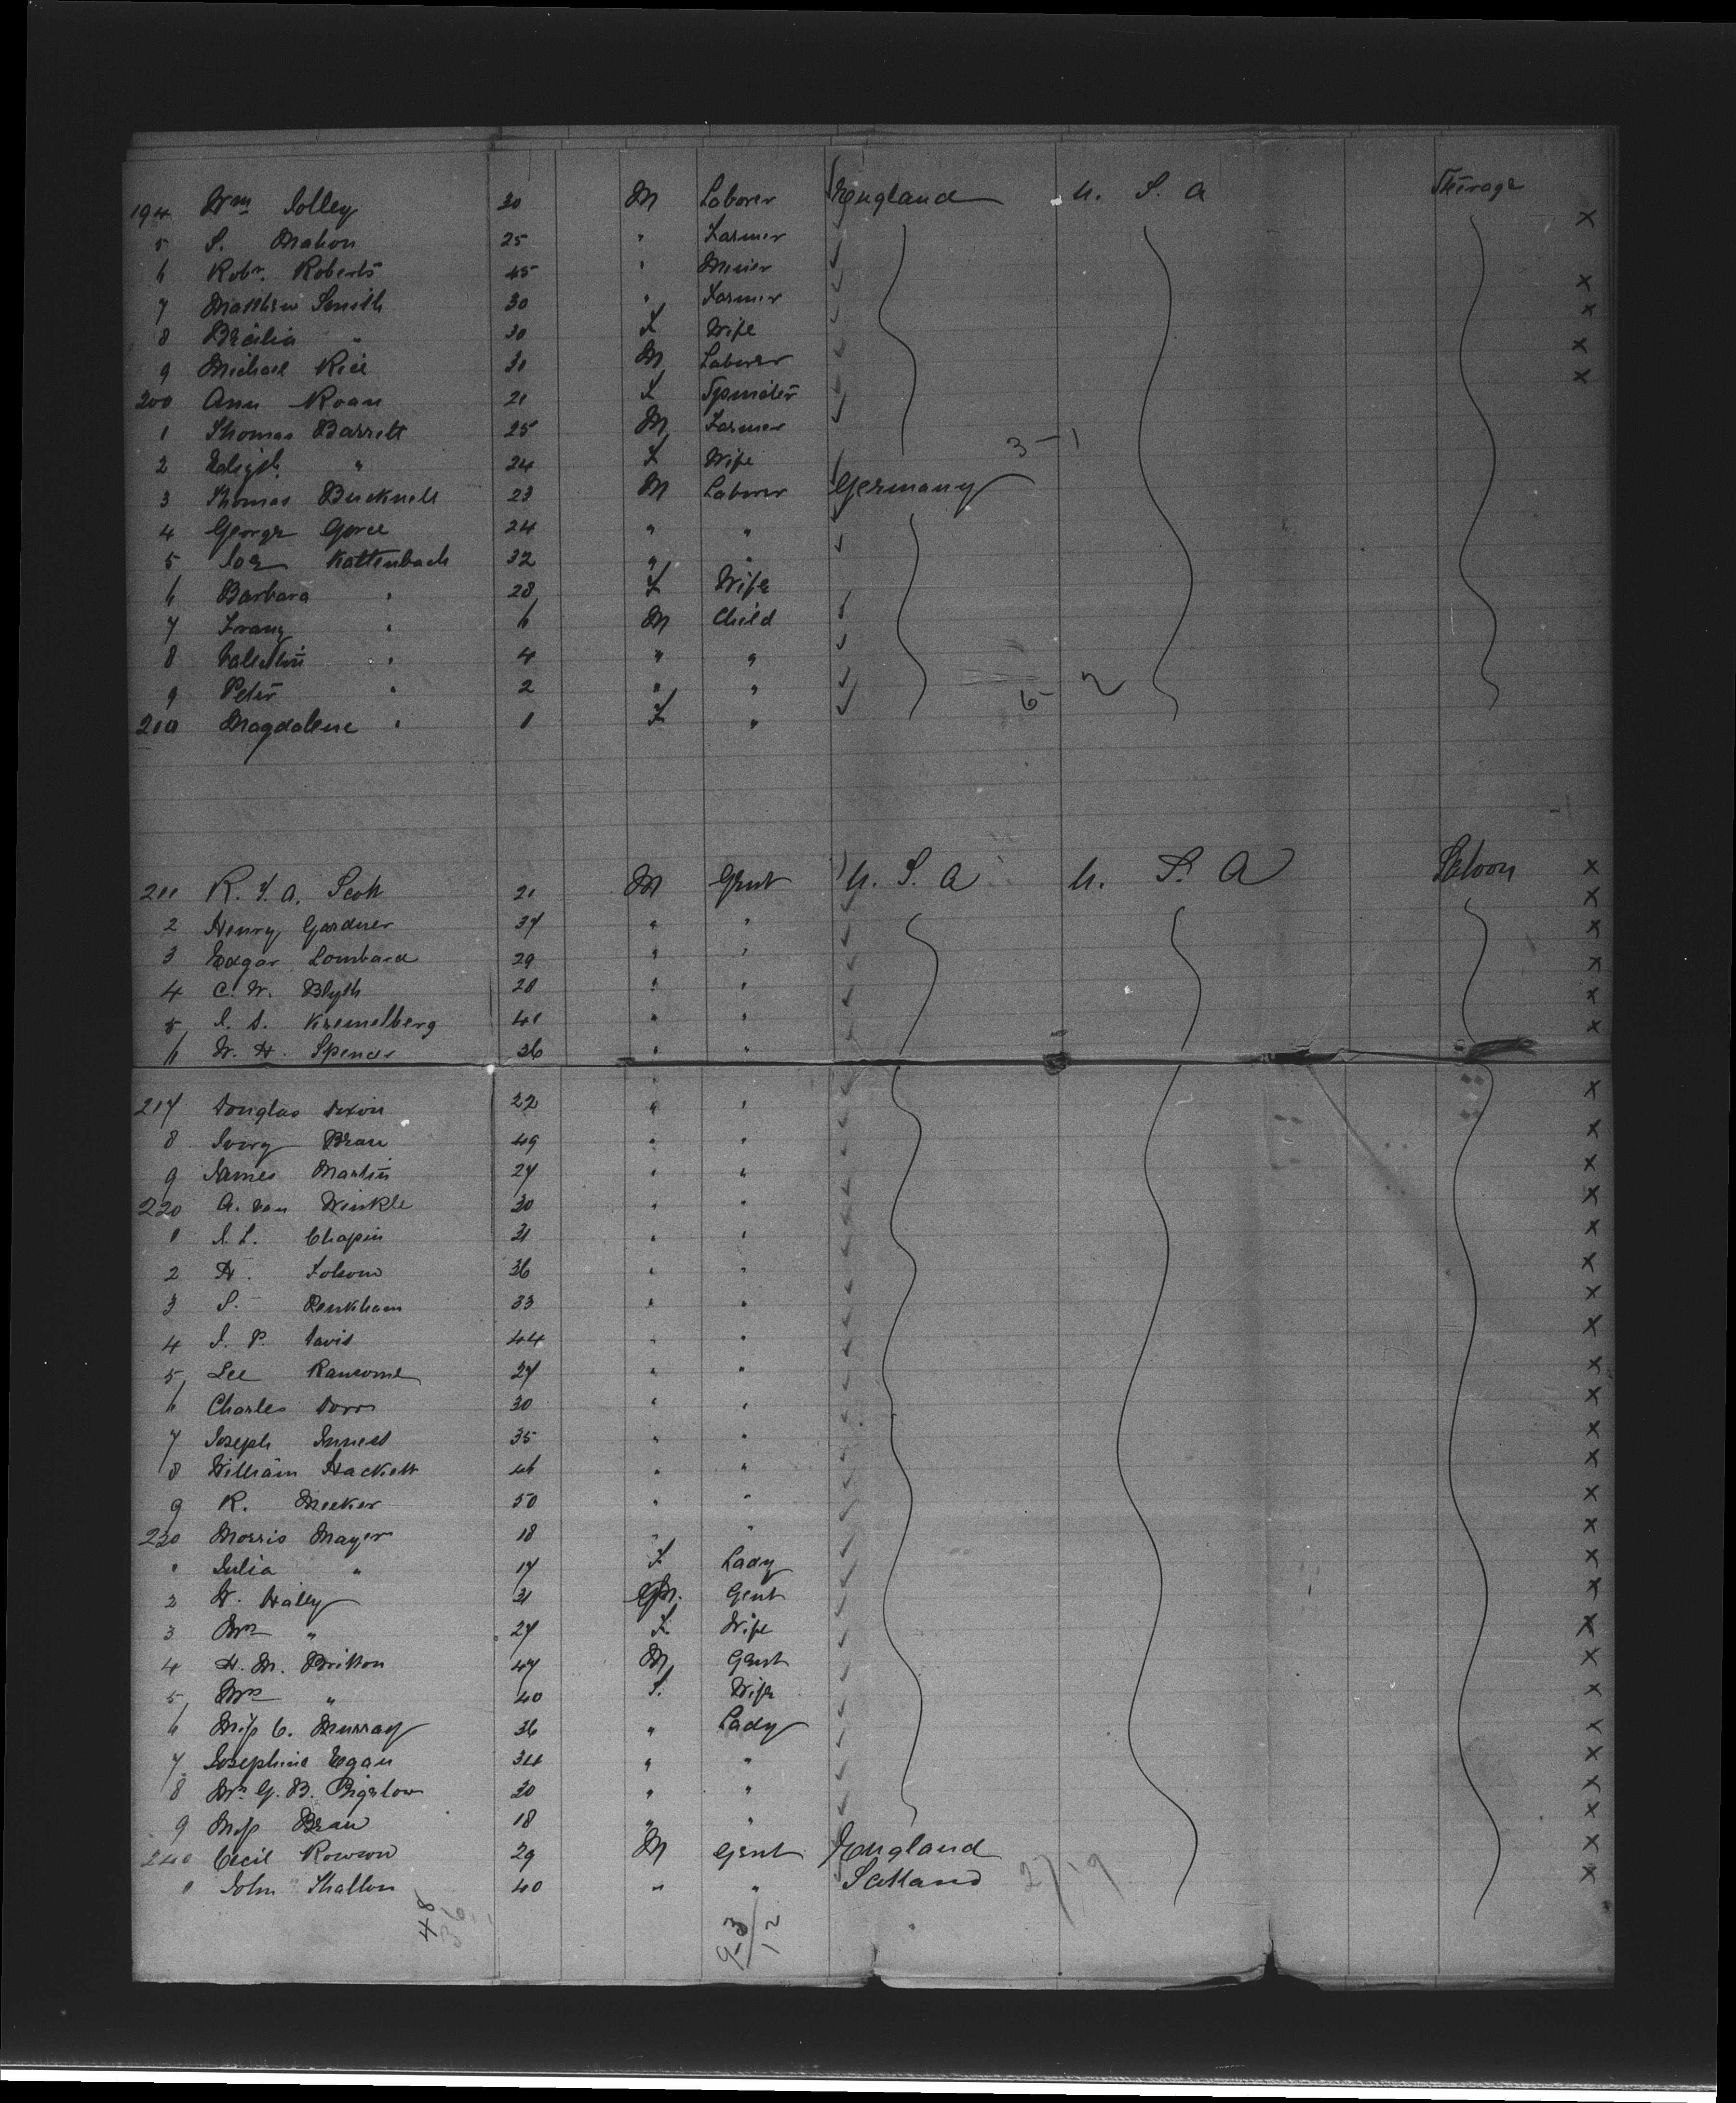 194 Wm Jolley 30 M Laborer England U. S. A Steerage
5 S. Mahon 25 " Farmer
6 Robt. Roberts 45 " Miner
7 Matthew Smith 30 " Farmer
8 " 30 F Wife
9 Michael Rice 30 M Laborer
200 Ann Roan 21 F Spinster
1 Thomas Barrett 25 M Farmer
2 " 24 F Wife
3 - 1
3 Thomas Bucknell 23 M Laborer Germany
4 George 24 " "
5 Kattenbach 32 " "
6 Barbara " 28 F Wife
7 Franz " 6 M Child
8 Valentin " 4 " "
9 Peter " 2 " "
6 - 2
210 Magdalene " 1 F "
211 R. F. A. Scott 21 M Gent U. S. A U. S. A Saloon
2 Henry Gardner 37 " "
3 Edgar Lombard 29 " "
4 C. W. Blyth 28 " "
5 J. D. Kremelberg 41 " "
6 W. H. Spencer 36 " "
217 Douglas Dixon 22 " "
8 Ivory Bean 49 " "
9 James Martin 27 " "
220 A. van Winkle 30 " "
1 J. L. Chapin 31 " "
2 H. Folsom 36 " "
3 S. Penkham 33 " "
4 J. P. Davis 44 " "
5 Lee Ransome 27 " "
6 Charles Dorr 30 " "
7 Joseph 35 " "
8 William Hackett 46 " "
9 R. Meeker 50 " "
230 Morris Mayer 18 " "
" Julia " 17 F Lady
2 W. Halley 31 M. Gent
3 Mrs " 27 F Wife
4 H. M. Britton 47 M Gent
5 Mrs " 40 F. Wife
6 Miss C. Murray 36 " Lady
7 Josephine Egan 34 " "
8 Mrs G. B. Bigelow 30 " "
9 Miss Bean 18 " "
240 Cecil Rowson 29 M Gent England
1 John Shallon 40 " " Scotland
48